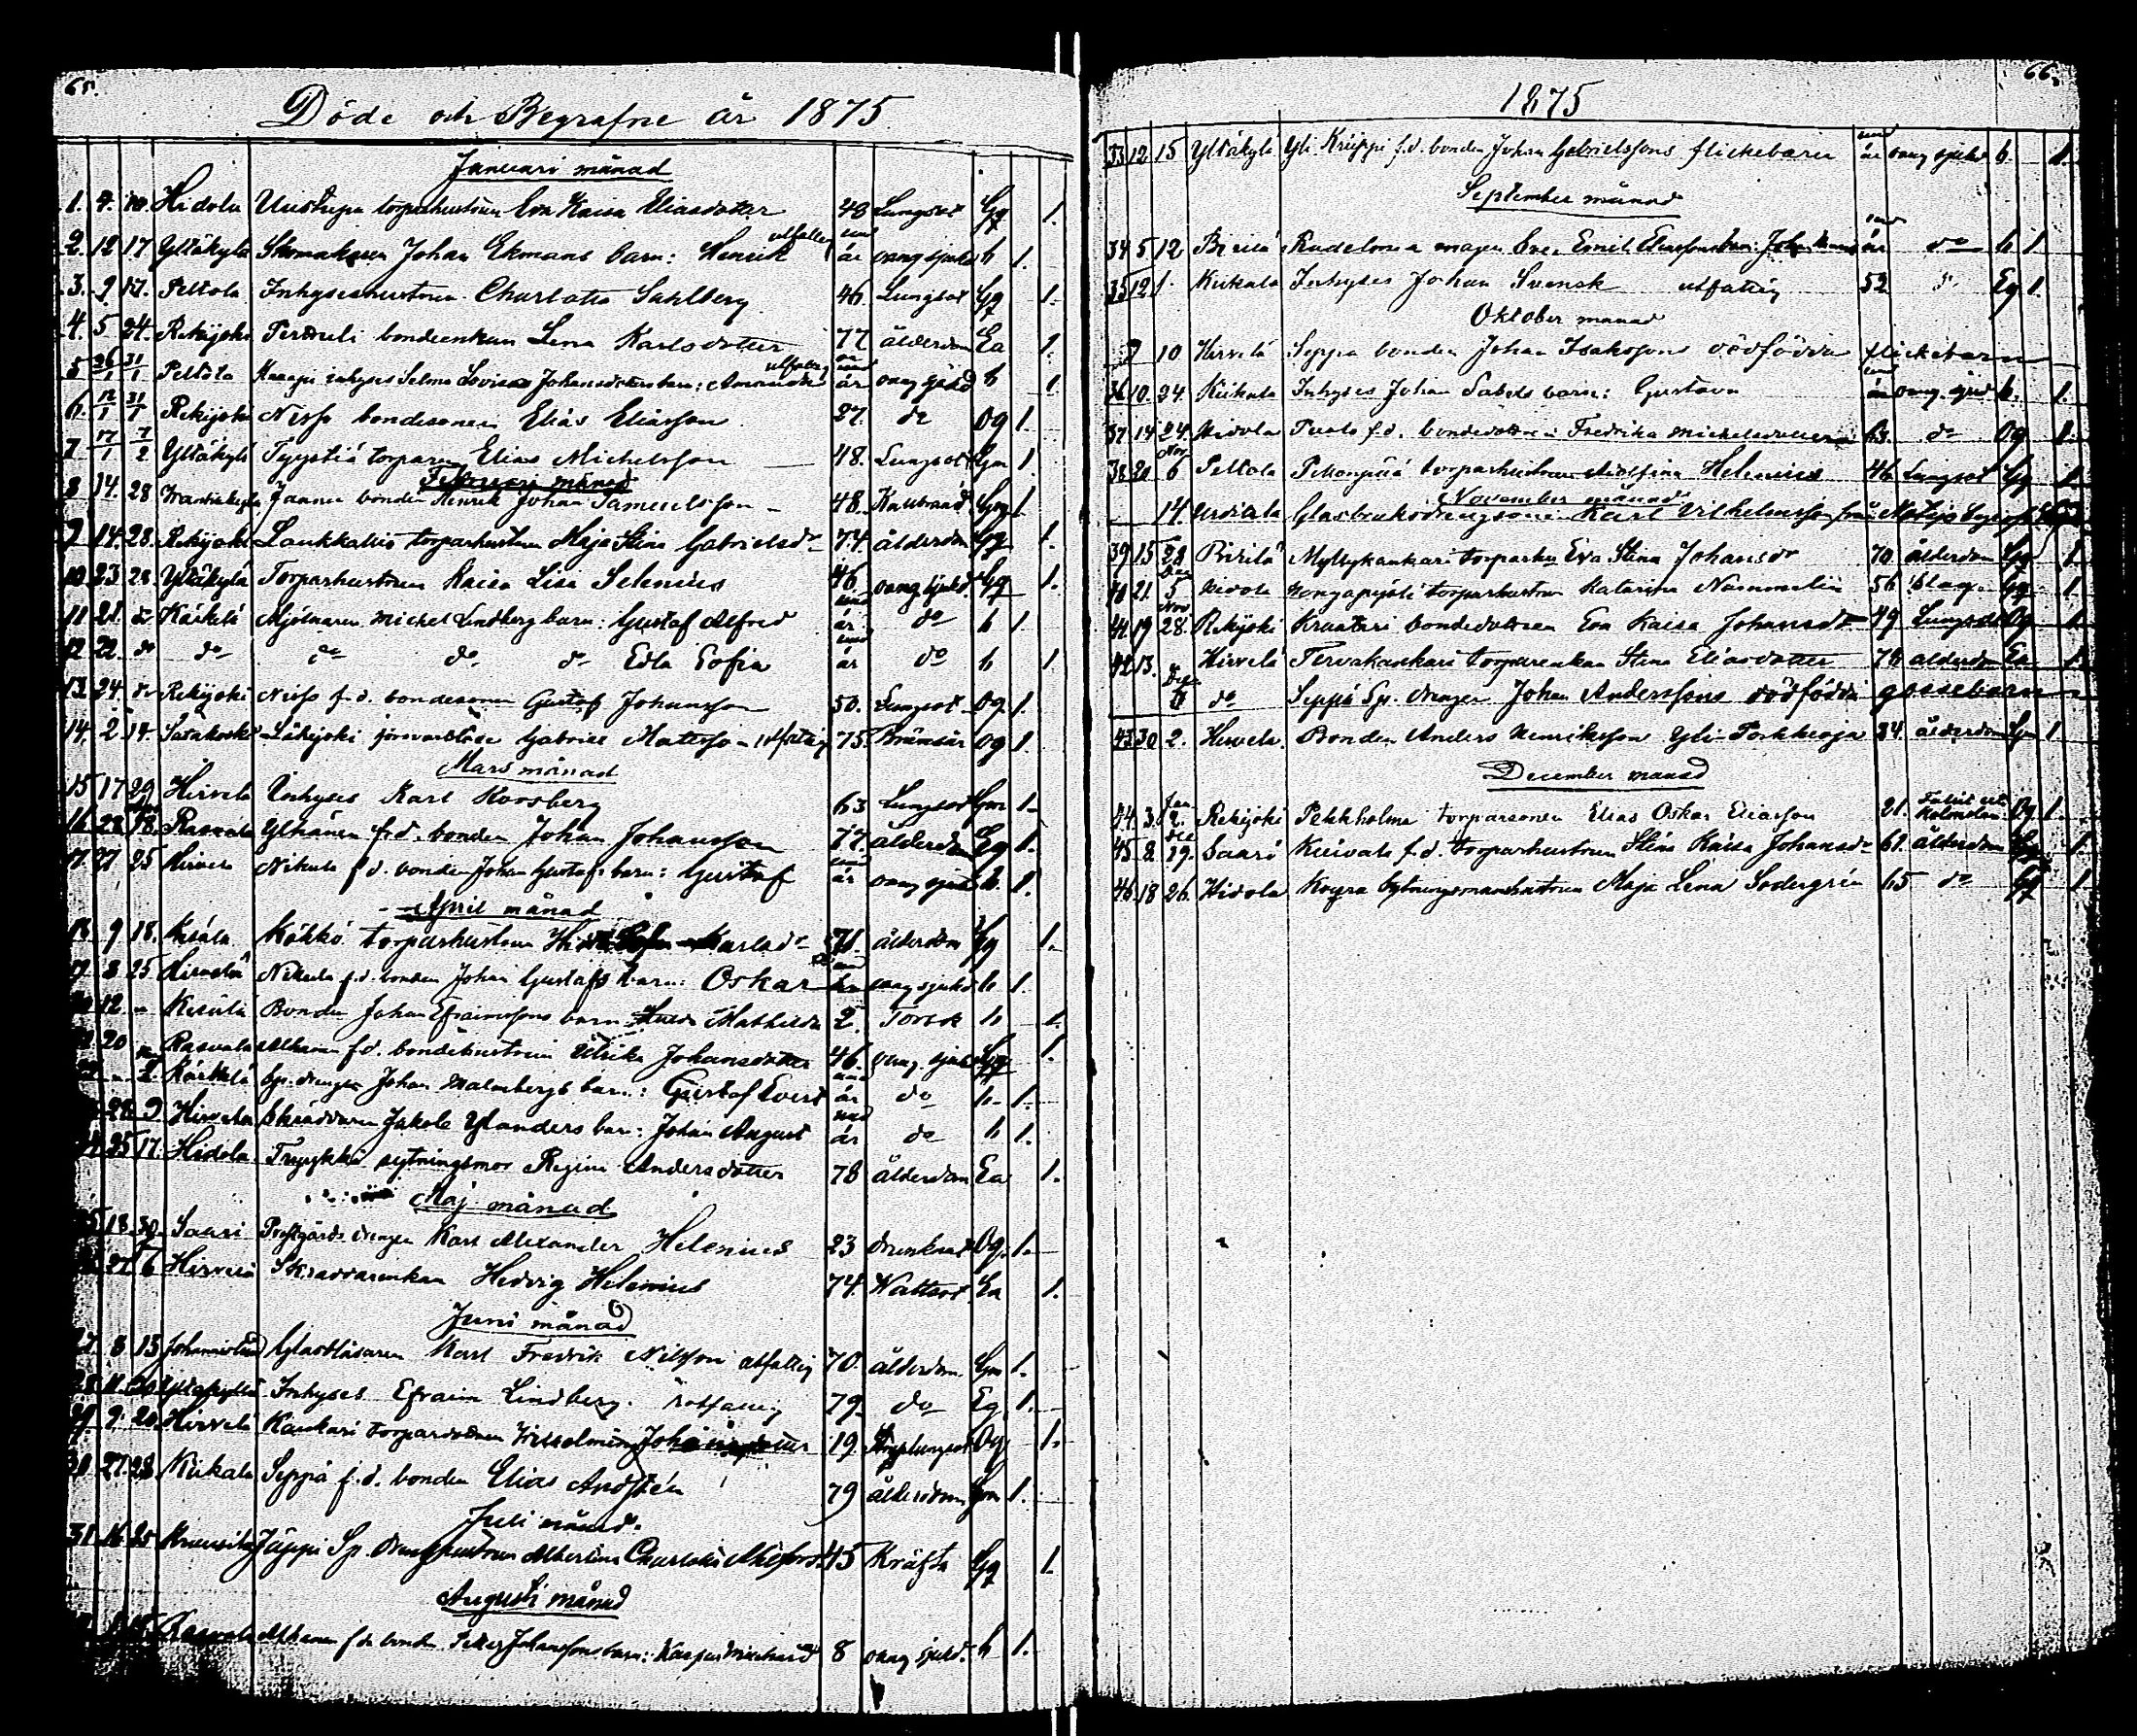 65.
Döde och Begrafne år 1875
Januari månad
1. 7. 10. Hidola Torparhustrun Eva Kaisa Eliasdotter 48 Lungsot Gq 1.
2. 12 17 Yltäkylä Skomakaren Johan Ekmans barn: Henrik utfattig und år oang sjukd b 1.
3. 9 17. Peltola Inhyseshustrun Charlotta Sahlberg 46. Lungsot Gq 1.
4. 5 24. Rekijoki bondeenkan Lena Karlsdotter 77 ålderdom Ea 1
5 26/1 31/1 Peltola inhyses Selma Lovisa Johansdotters barn: Amanda utfattig und år oang sjukd b 1
6. 12/1 31/1 Rekijoki bondesonen Elias Eliasson 27. do Og 1.
7 17/1 7/2 Yltäkylä Tyystiä torparen Elias Michelsson 48. Lungsot Gm 1
Februari månad
8 14. 28 Janne bonden Henrik Johan Samuelsson 48. Kallbrand Gm 1
9 14. 28. Rekijoki Laukkallio torparhustrun Maja Stina Gabrielsdr 74. ålderdom Gq 1.
10 23 28 Yltäkylä Torparhustrun Kaisa Lisa Selenius 46 oang sjukd. Gq 1.
11 21. do Kärkelä Mjölnaren Michel Lindberg barn: Gustaf Alfred und år do b 1
12 22. do do do do do Edla Sofia und år do b 1
13. 24. do Rekijoki f.d. bondesonen Gustaf Johansson 50. Lungsot Og. 1.
14. 2 14. Lähijoki försvarslöse Gabriel Matsson utfattig 75. Og 1.
Mars månad
15 17 29 Hirvelä Inhyses Karl Roosberg 63 Lungsot Gm 1
16. 28 18. Rasvala Ylhänen f.d. bonden Johan Johansson 77. ålderdom Eg 1.
17. 27 25 Hirvelä Nikula f.d. bonden Johan Gustafs barn: Gustaf und år oang sjukd b. 1.
April månad
18. 9 18. Köhkö torparhustrun Karlsdr 71. ålderdom Gq 1.
19. 8 25 Hirvelä Nikula f.d. bonden Johan Gustafs barn: Oskar und oang sjukd b 1.
20 12. Bonden Johan Efraimssons barn Mathilda 2. Torsk b 1.
21 20 Rasvala Alhanen f.d. bondehustrun Ulrika Johansdotter 46. oang. sjukd Gq 1.
22 2 Kärkelä Sp. drengen Johan Malmbergs barn: Gustaf Evert und år do b 1.
23 28 9 Hirvelä Skräddaren Jakob Ylanders barn: Johan August und år do b 1.
24. 25 17. Hidola. sytningsmor Regina Andersdotter 78 ålderdom Ea 1.
Maj månad
25 18 30. Saari Prestgårds drengen Karl Alexander Helenius 23 drunknat Og. 1.
26 27 6 Hirvelä Skräddarenkan Hedvig Helenius 74. Wattsot Ea 1.
Juni månad
27 8 13 Johannislund Karl Fredrik Nilsson utfattig 70. ålderdom. Gm 1.
28 11. 20 Yltäkylä Inhyses Efraim Lindberg. utfattig 79. do Eg. 1.
29 9. 20. Hirvelä Kankari torpardottern Wilhelmina 19. Og 1.
30 27. 28 Kiikala Seppä f.d. bonden Elias Andstén 79 ålderdom Gm 1.
Juli månad.
31 16 25 Sp. drengshustrun Albertina Charlotta 45 Kräfta Gq 1.
Augusti månad
Rasvala Alhanen f.d. bonden Johanssons barn: 8 oang sjukd. b 1.
66.
1875
33 12 15 Yltäkylä Yli Krüppi f.d. bonden Johan Gabrielssons flickebarn und år oang sjukd b. 1.
September månad
34 5 12 Pirilä Emil Eliassons barn: und år do b 1
35 12 1. Kiikala Inhyses Johan Svensk utfattig 52 do Eg 1.
Oktober månad
7 10 Hirvelä Seppä bonden Johan Isakssons dödfödda flickebarn
36 10. 24. Kiikala Inhyses Johan barn: Gustava und år oang. sjukd b. 1.
37 14 24. Hidola f.d. bondedottren Fredrika Michelsdotter 63. do Og 1.
38 20 Nov 6 Peltola torparhustrun Adolfina Helenius 46 Lungsot Gq 1
November månad
14. Glasbruksdrengsonen Karl Vilhelmsson från
39 15 28 Pirilä Myllykankari Eva Stina Johansdr 70. ålderdom 1.
40 21. Dec 5 Hidola torparhustrun Katarina 56 Slag. Gq 1.
41 19 Nov 28. Rekijoki Kraatari bondedottren Eva Kaisa Johansdr 49 Lungsot Og 1
42 13. Hirvelä Tervakankari torparenkan Stina Eliasdotter 78 ålderdom Ea 1.
Dec do Seppä Sp. drengen Johan Anderssons dödfödda gossebarn
43 30 2. Hirvelä Bonden Anders Henriksson Yli-Torkkioja 34. ålderdom Gm 1.
December månad
44. 3. Jan 2. Rekijoki Pekkholma torparsonen Elias Oskar Eliasson 21. Og 1.
45 8. Dec 19. Saari Kuivala f.d. torparhustrun Stina Kaisa Johansdr 61. ålderdom 1
46. 18 26. Hidola Koura sytningsmanshustrun Maja Lena Södergrén 65 do Gq 1